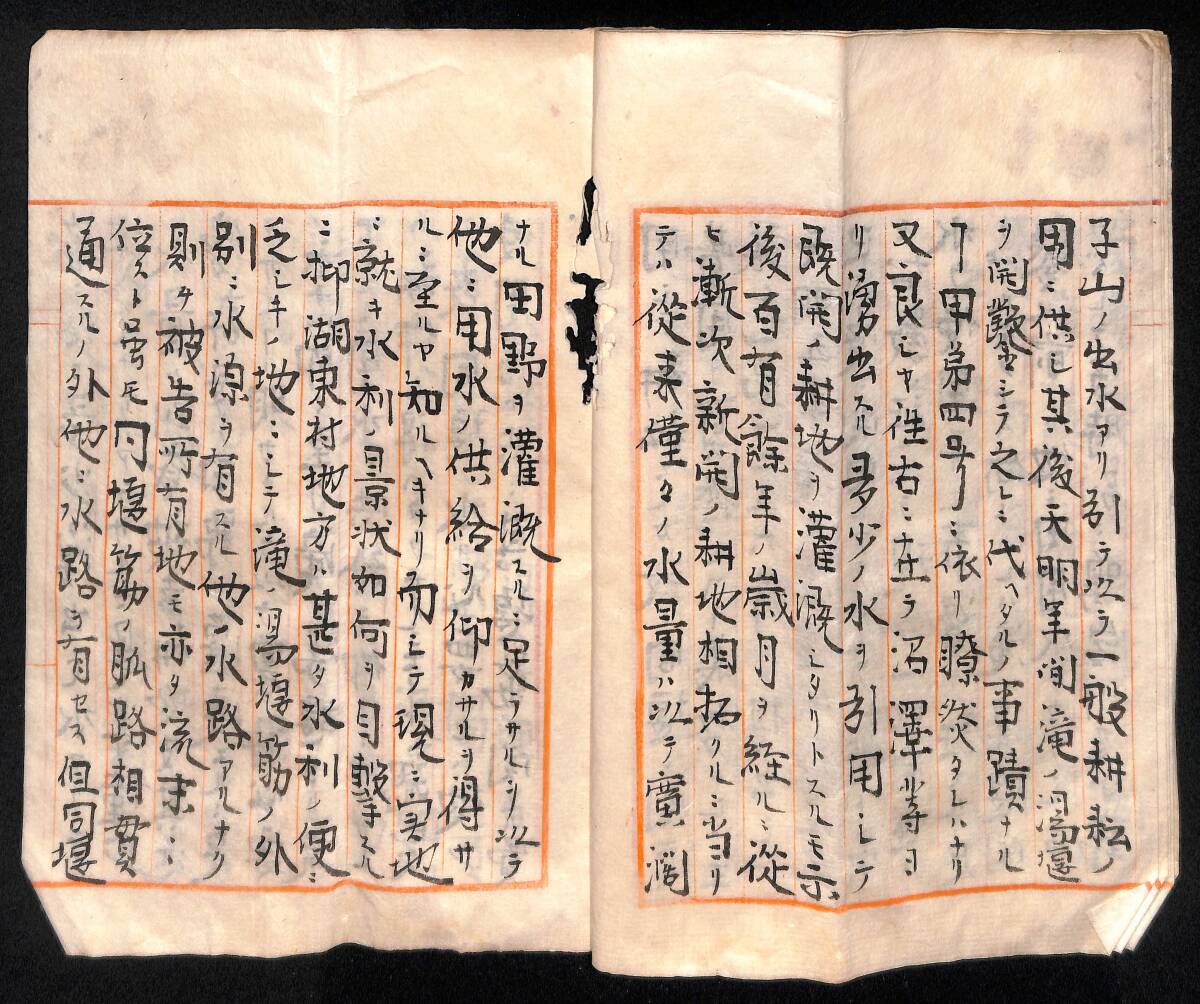 子山ノ出水アリ引テ以テ一般耕耘ノ
用ニ供シ其後天明年間滝ノ湯堰
ヲ開鑿シテ之レニ代ヘタルノ事蹟ナル
ヿ甲第四号ニ依リ瞭然タレハナリ
又良シヤ往古ニ在テ沼澤等ヨ
リ湧出スル多少ノ水ヲ引用シテ
既開ノ耕地ヲ灌漑シタリトスルモ示
後百有餘年ノ歳月ヲ経ルニ從
ヒ漸次新開ノ耕地相拓クルニ当リ
テハ從来僅々ノ水量ハ以テ廣濶
ナル田野ヲ灌漑スルニ足ラサルヲ以テ
他ニ用水ノ供給ヲ仰カサルヲ得サ
ルニ至ルヤ知ルヘキナリ而シテ現ニ実地
ニ就キ水利ノ景状如何ヲ目撃スル
ニ抑湖東村地方ハ甚タ水利ノ便ニ
乏シキノ地ニシテ滝ノ湯堰筋ノ外
別ニ水源ヲ有スル他ノ水路アルナク
則チ被告所有地モ亦タ流末ニ
位スト雖モ同堰筋ノ脈路相貫
通スルノ外他ニ水路ヲ有セス但同堰